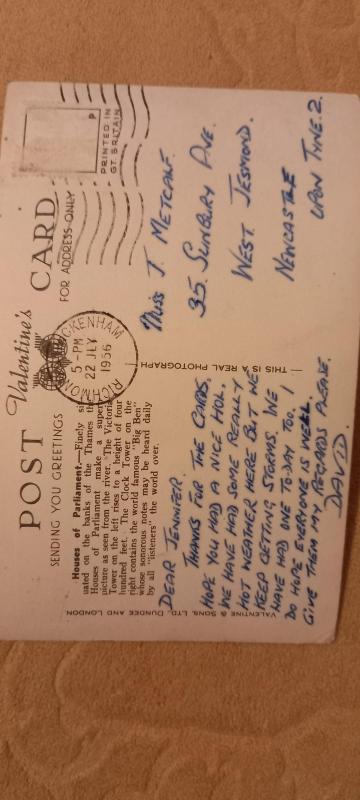 POST CARD
Valentine's
SENDING YOU GREETINGS
FOR ADDRESS ONLY
P
PRINTED IN
GT. BRITAIN
Houses of Parliament.—Finely
uated on the banks of the Thames the
Houses of Parliament make a superb
picture as seen from the river. The Victoria
Tower on the left rises to a height of four
hundred feet. The Clock Tower on the
right contains the world famous "Big Ben"
whose sonorous notes may be heard daily
by all "listeners" the world over.
5-PM
22 JLY
1956
RICHMOND
CKENHAM
DEAR JENNIFER.
THANKS FOR THE CARDS.
HOPE YOU HAD A NICE HOL.
WE HAVE HAD SOME REALLY
HOT WEATHER HERE BUT WE
KEEP GETTING STORMS. WE
HAVE HAD ONE TO-DAY TOO. I
DO HOPE EVERYONE WELL
GIVE THEM MY REGARDS PLEASE.
DAVID.
— THIS IS A REAL PHOTOGRAPH —
MISS J. METCALF
35. SUNBURY AVE.
WEST JESMOND.
NEWCASTLE
UPON TYNE 2.
VALENTINE & SONS, LTD., DUNDEE AND LONDON